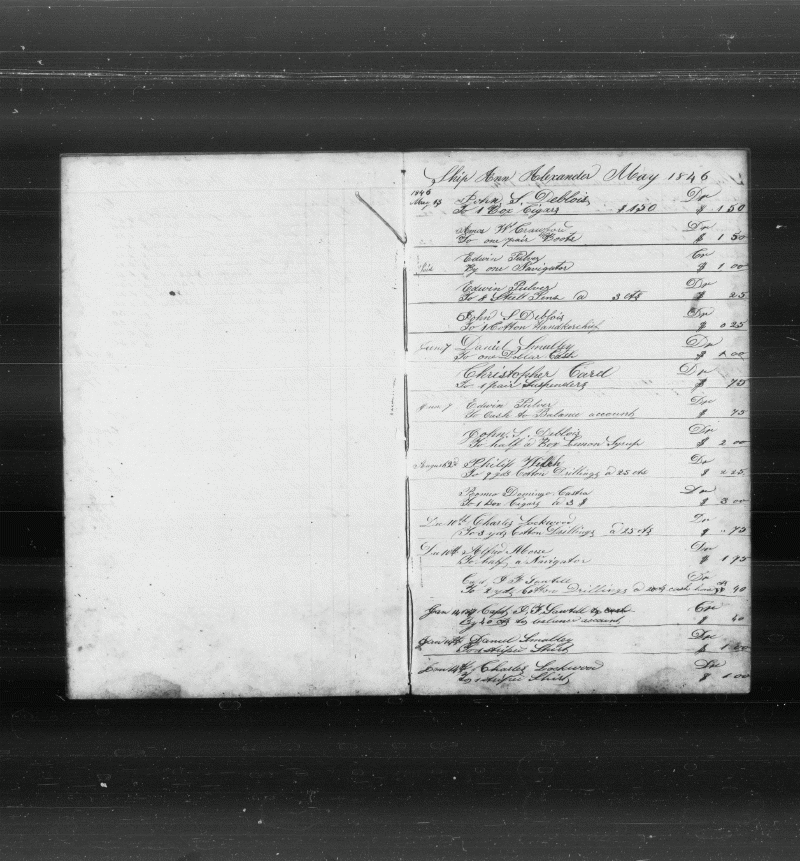 Ship Ann Alexander May 1846
1846
May 13 John S. Deblois Dr
To 1 Box Cigars $1.50 $ 1 50
Amos W Crawford Dr
To one pair Boots $ 1 50
Edwin Pulver Cr
By one Navigator $ 1 00
Edwin Pulver Dr
To 8 Steel Pens a 3 cts $ 25
John S Deblois Dr
To 1 Cotton Handkerchief $ 0 25
June 7 Daniel Smalley Dr
To one Dollar Cash $ 1 00
Christopher Card Dr
To 1 pair Suspenders $ 75
June 7 Edwin Pulver Dr
To Cash to Balance account $ 75
John S. Deblois Dr
To half a Box Lemon Syrup $ 2 00
August 62d Philip Welch Dr
To 9 yds Cotton Drillings a 25 cts $ 2 25
Domingo Dr
To 1 Box Cigars a 3 $ $ 3 00
Dec 10th Charles Lockwood Dr
To 3 yds Cotton Drillings a 25 cts $ 75
Dec 10th Alfred Morse Dr
To half a Navigator $ 1 75
Capt J F Sawtell Dr
To 2 yds Cotton Drillings a cash $ 40
Jan Capt J. F Sawtell by cash Cr
By 40 cts to balance account $ 40
Jan Daniel Smalley Dr
To 1 Shirt $ 1
Jan Charles Lockwood Dr
To 1 Shirt $ 1 00